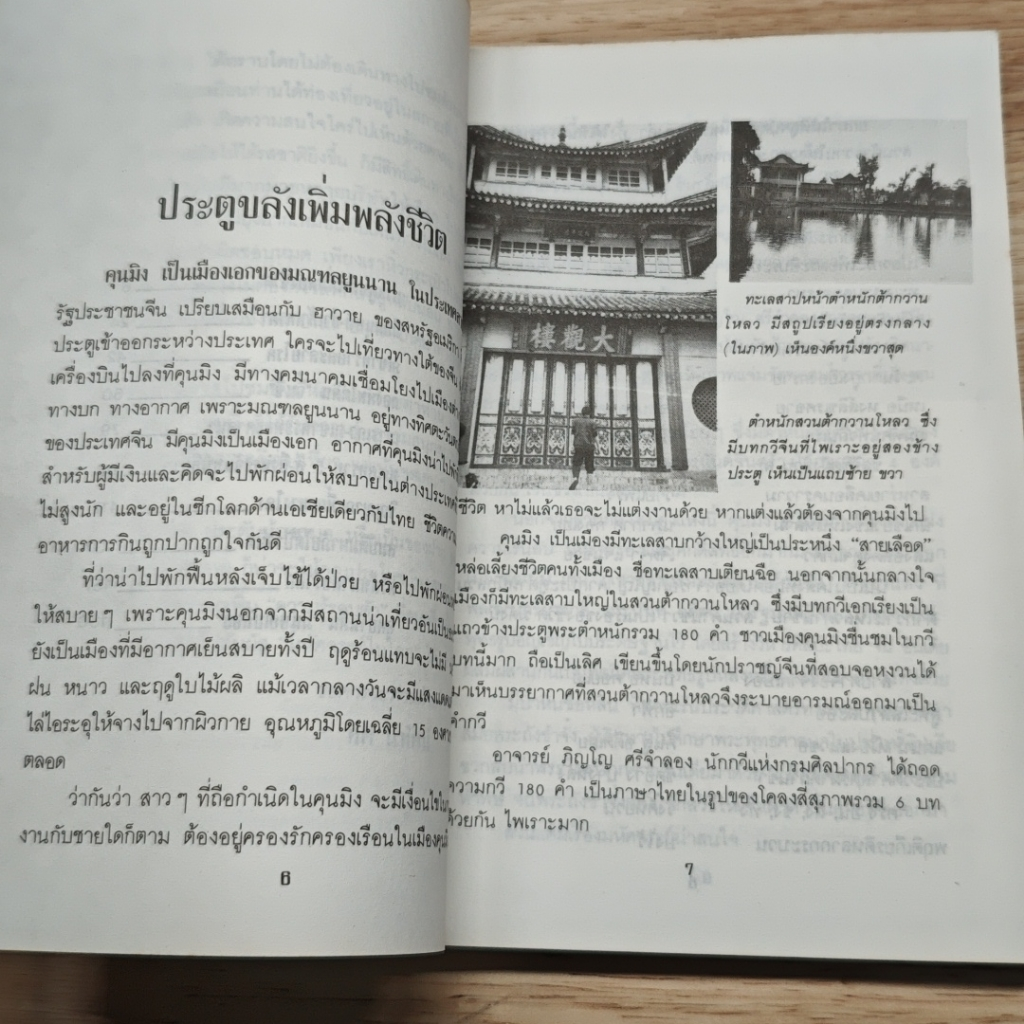 ประตูขลังเพิ่มพลังชีวิต
คุนมิง เป็นเมืองเอกของมณฑลยูนนาน ในประเทศ
รัฐประชาชนจีน เปรียบเสมือนกับ ฮาวาย ของสหรัฐอเมริกา
ประตูเข้าออกระหว่างประเทศ ใครจะไปเที่ยวทางใต้ของจีน
เครื่องบินไปลงที่คุนมิง มีทางคมนาคมเชื่อมโยงไปเมือง
ทางบก ทางอากาศ เพราะมณฑลยูนนาน อยู่ทางทิศตะวันตก
ของประเทศจีน มีคุนมิงเป็นเมืองเอก อากาศที่คุนมิงน่าไปพัก
สำหรับผู้มีเงินและคิดจะไปพักผ่อนให้สบายในต่างประเทศ
ไม่สูงนัก และอยู่ในซีกโลกด้านเอเซียเดียวกับไทย ชีวิตความ
อาหารการกินถูกปากถูกใจกันดี
ที่ว่าน่าไปพักฟื้นหลังเจ็บไข้ได้ป่วย หรือไปพักผ่อน
ให้สบายๆ เพราะคุนมิงนอกจากมีสถานน่าเที่ยวอันเป็น
ยังเป็นเมืองที่มีอากาศเย็นสบายทั้งปี ฤดูร้อนแทบจะไม่มี
ฝน หนาว และฤดูใบไม้ผลิ แม้เวลากลางวันจะมีแสงแดด
ไล่ไอระอุให้จางไปจากผิวกาย อุณหภูมิโดยเฉลี่ย 15 องศา
ตลอด
ว่ากันว่า สาวๆ ที่ถือกำเนิดในคุนมิง จะมีเงื่อนไข
งานกับชายใดก็ตาม ต้องอยู่ครองรักครองเรือนในเมือง
6
大觀樓
ทะเลสาปหน้าตำหนักต้ากวาน
โหลว มีสถูปเรียงอยู่ตรงกลาง
(ในภาพ) เห็นองค์หนึ่งขวาสุด
ตำหนักสวนต้ากวานโหลว ซึ่ง
มีบทกวีจีนที่ไพเราะอยู่สองข้าง
ประตู เห็นเป็นแถบซ้าย ขวา
ชีวิต หาไม่แล้วเธอจะไม่แต่งงานด้วย หากแต่งแล้วต้องจากคุนมิงไป
คุนมิง เป็นเมืองมีทะเลสาบกว้างใหญ่เป็นประหนึ่ง “สายเลือด”
หล่อเลี้ยงชีวิตคนทั้งเมือง ชื่อทะเลสาบเตียนฉือ นอกจากนั้นกลางใจ
เมืองก็มีทะเลสาบใหญ่ในสวนต้ากวานโหลว ซึ่งมีบทกวีเอกเรียงเป็น
แถวข้างประตูพระตำหนักรวม 180 คำ ชาวเมืองคุนมิงชื่นชมในกวี
บทนี้มาก ถือเป็นเลิศ เขียนขึ้นโดยนักปราชญ์จีนที่สอบจอหงวนได้
มาเห็นบรรยากาศที่สวนต้ากวานโหลวจึงระบายอารมณ์ออกมาเป็น
คำกวี
อาจารย์ ภิญโญ ศรีจำลอง นักกวีแห่งกรมศิลปากร ได้ถอด
ความกวี 180 คำ เป็นภาษาไทยในรูปของโคลงสี่สุภาพรวม 6 บท
ด้วยกัน ไพเราะมาก
7